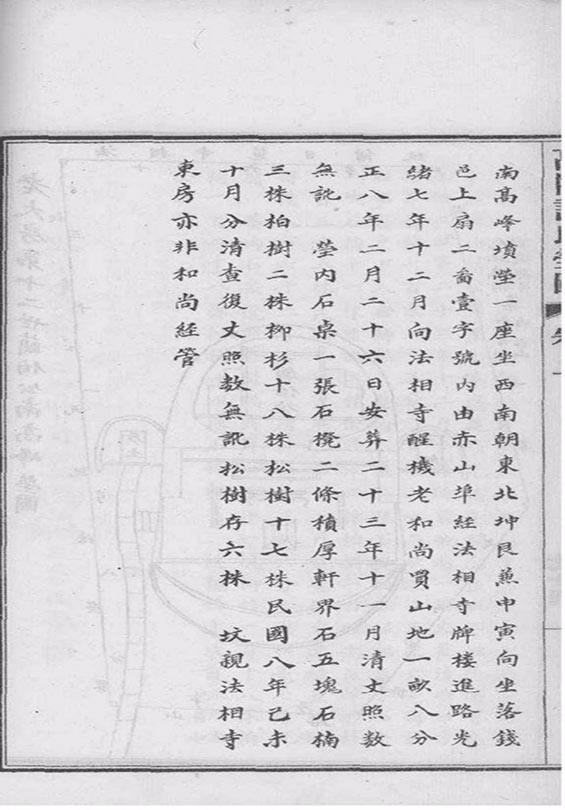 南高峰墳塋一座坐西南朝東北坤艮兼申寅向坐落錢
邑上扇二啚壹字號内由赤山埠經法相寺牌樓進路光
緒七年十二月向法相寺醒機老和尚買山地一畝八分
正八年二月二十六日安葬二十三年十一月清丈照數
無訛 塋内石桌一張石櫈二條積厚軒界石五塊石楠
三株柏樹二株柳杉十八株松樹十七株民國八年己未
十月分清查復丈照數無訛松樹存六株 坟親法相寺
東房亦非和尚經管